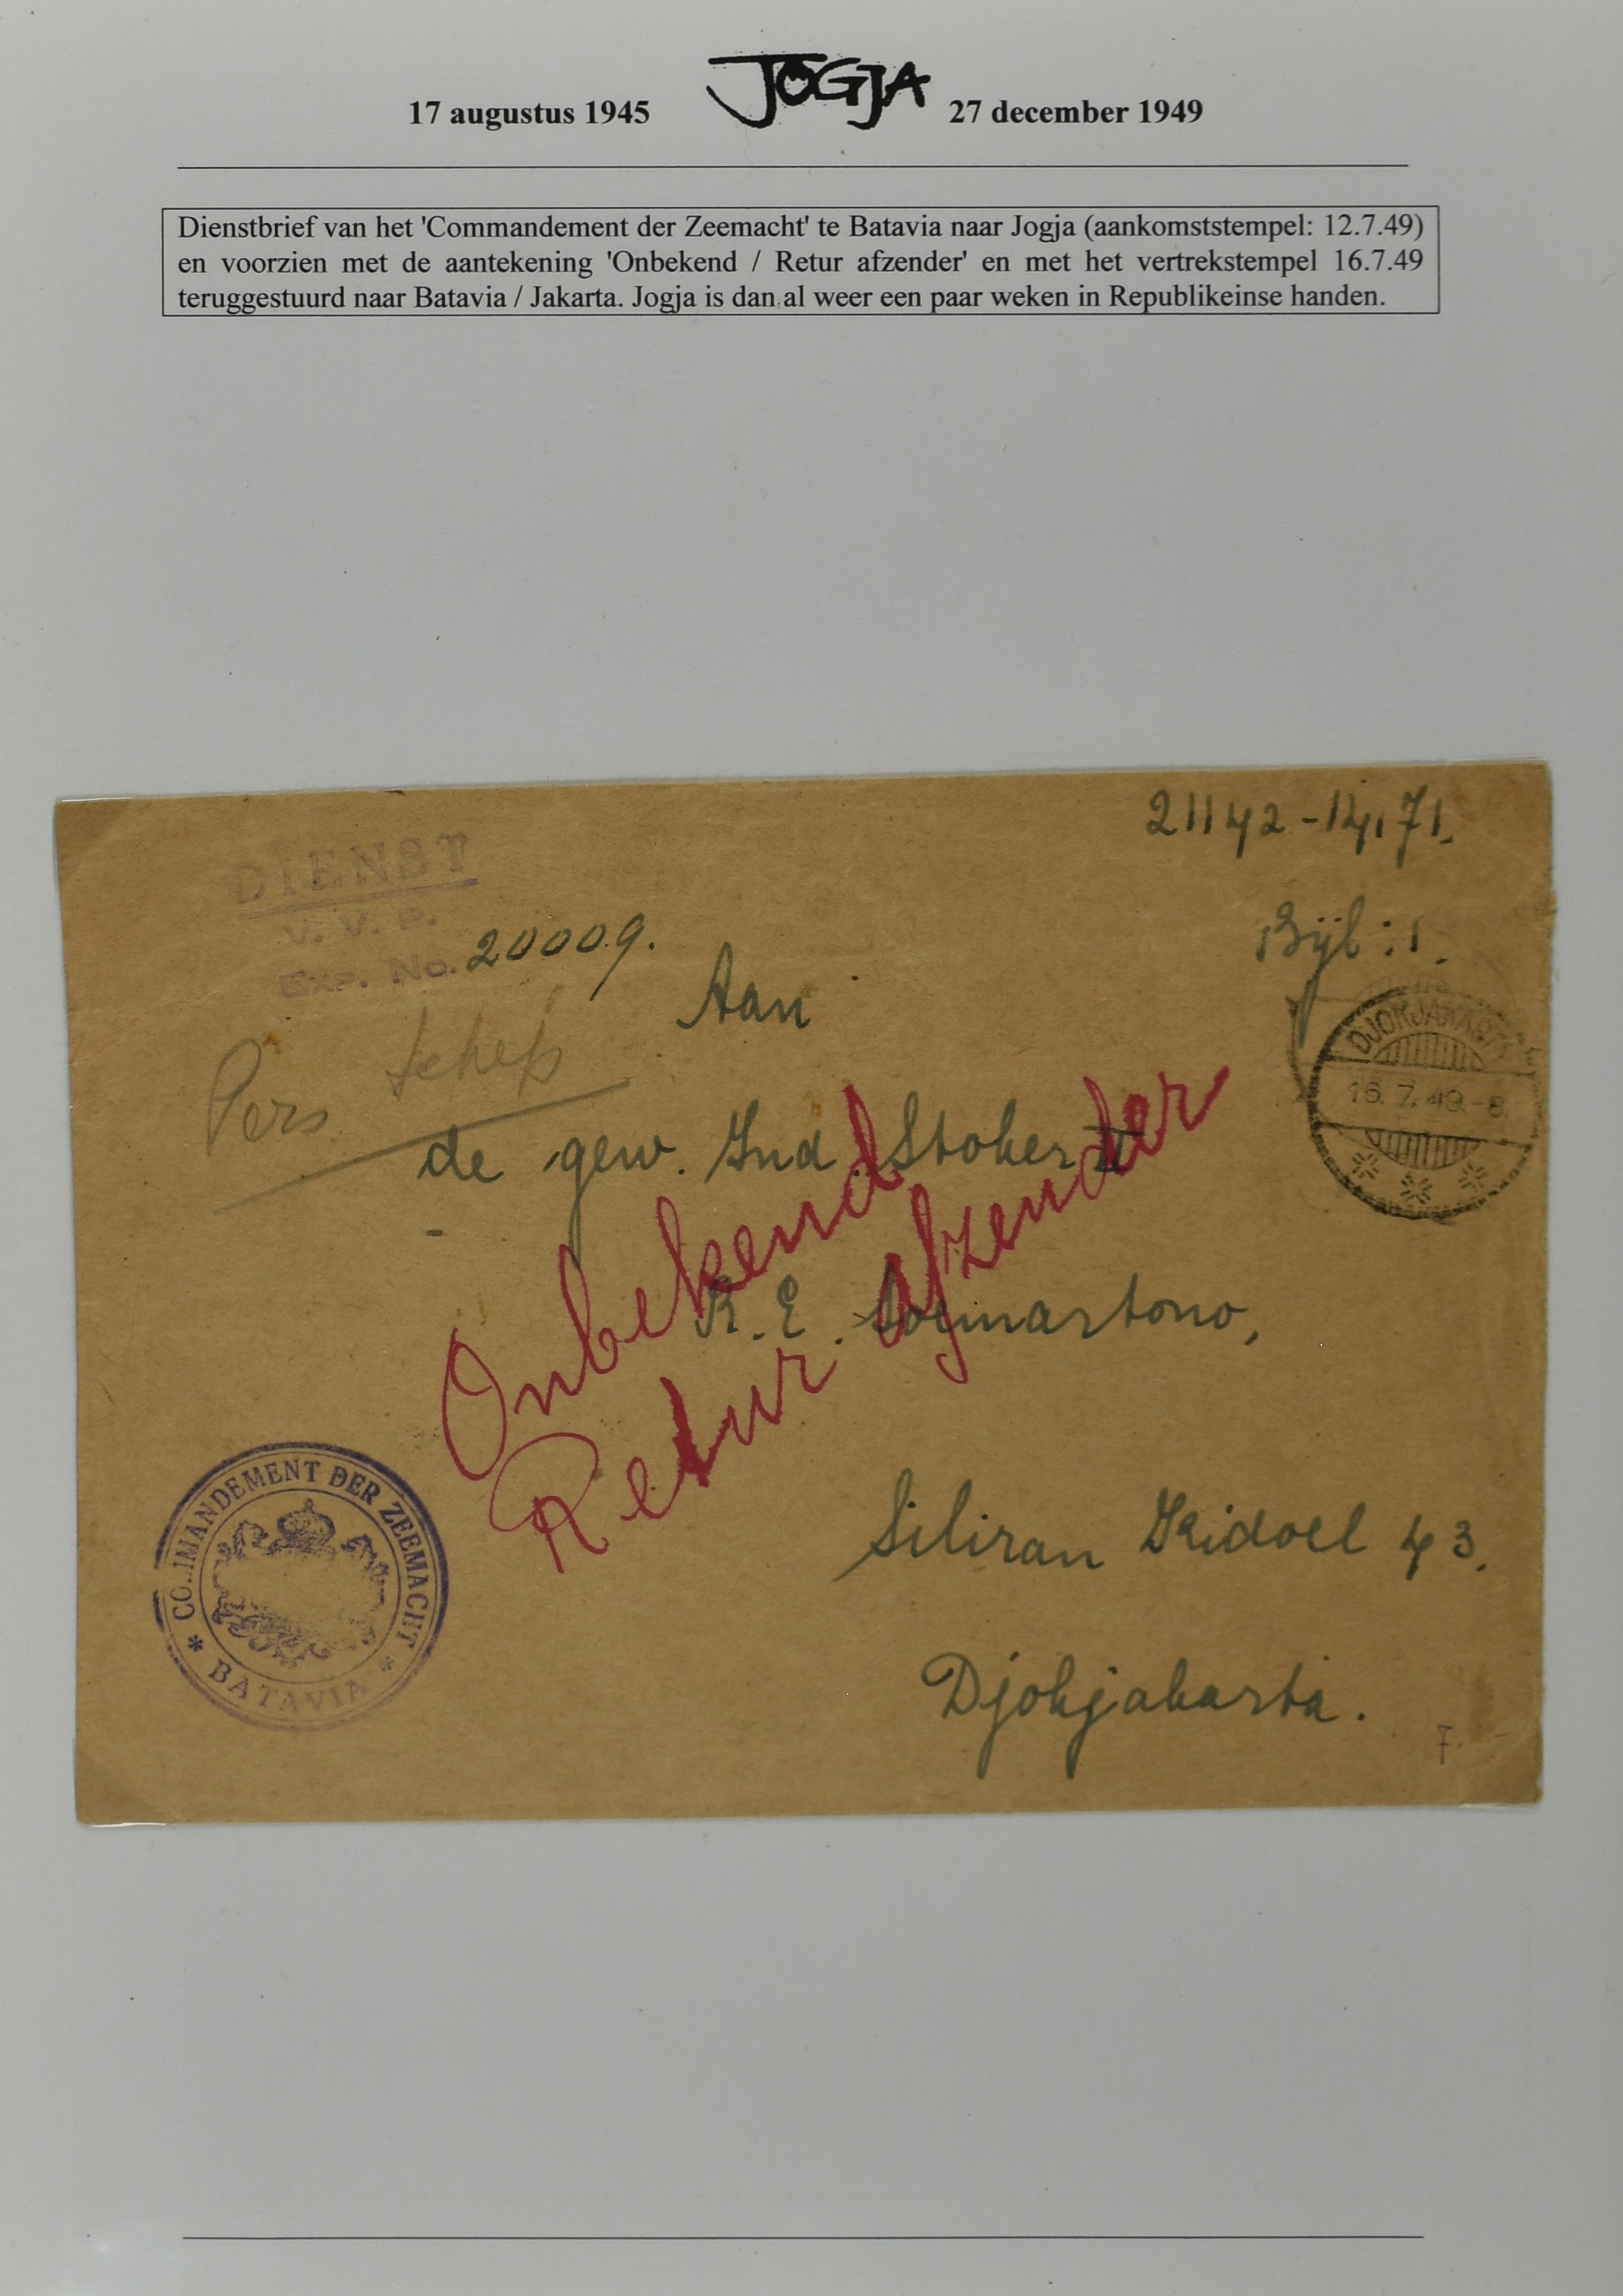 17 augustus 1945 JOGJA 27 december 1949
Dienstbrief van het 'Commandement der Zeemacht' te Batavia naar Jogja (aankomststempel: 12.7.49)
en voorzien met de aantekening 'Onbekend / Retur afzender' en met het vertrekstempel 16.7.49
teruggestuurd naar Batavia / Jakarta. Jogja is dan al weer een paar weken in Republikeinse handen.
21142-14.71.
DIENST
V. V. P.
Exp. No. 20009.
Bijl: 1.
Aan
Pers
DJOKJAKARTA
16.7.49.-8
de gew. Ind. Stoker II
Onbekend
Retur afzender
R.E. Soemartono,
Siliran Kidoel 43.
Djokjakarta.
COMMANDEMENT DER ZEEMACHT
* BATAVIA *